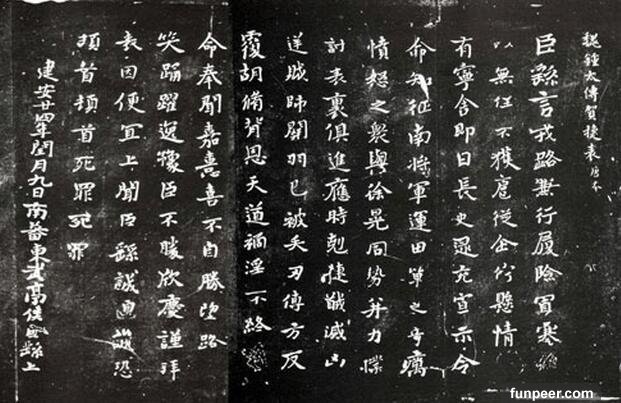 魏鍾太傅賀捷表 唐本
臣繇言戎路兼行履險冒寒
以無任不獲扈從企佇懸情
有寧舍即日長史逯充宣示令
命知征南將軍運田單之奇厲
憤怒之衆與徐晃同勢并力撲
討表裏俱進應時剋捷馘滅凶
逆賊帥關羽已被矢刃傅方反
覆胡脩背恩天道禍淫不終
命奉聞嘉憙喜不自勝望路
笑踊躍逸豫臣不勝欣慶謹拜
表因便宜上聞臣繇誠惶誠恐
頓首頓首死罪死罪
建安廿四年閏月九日南蕃東武亭侯臣繇上
funpeer.com